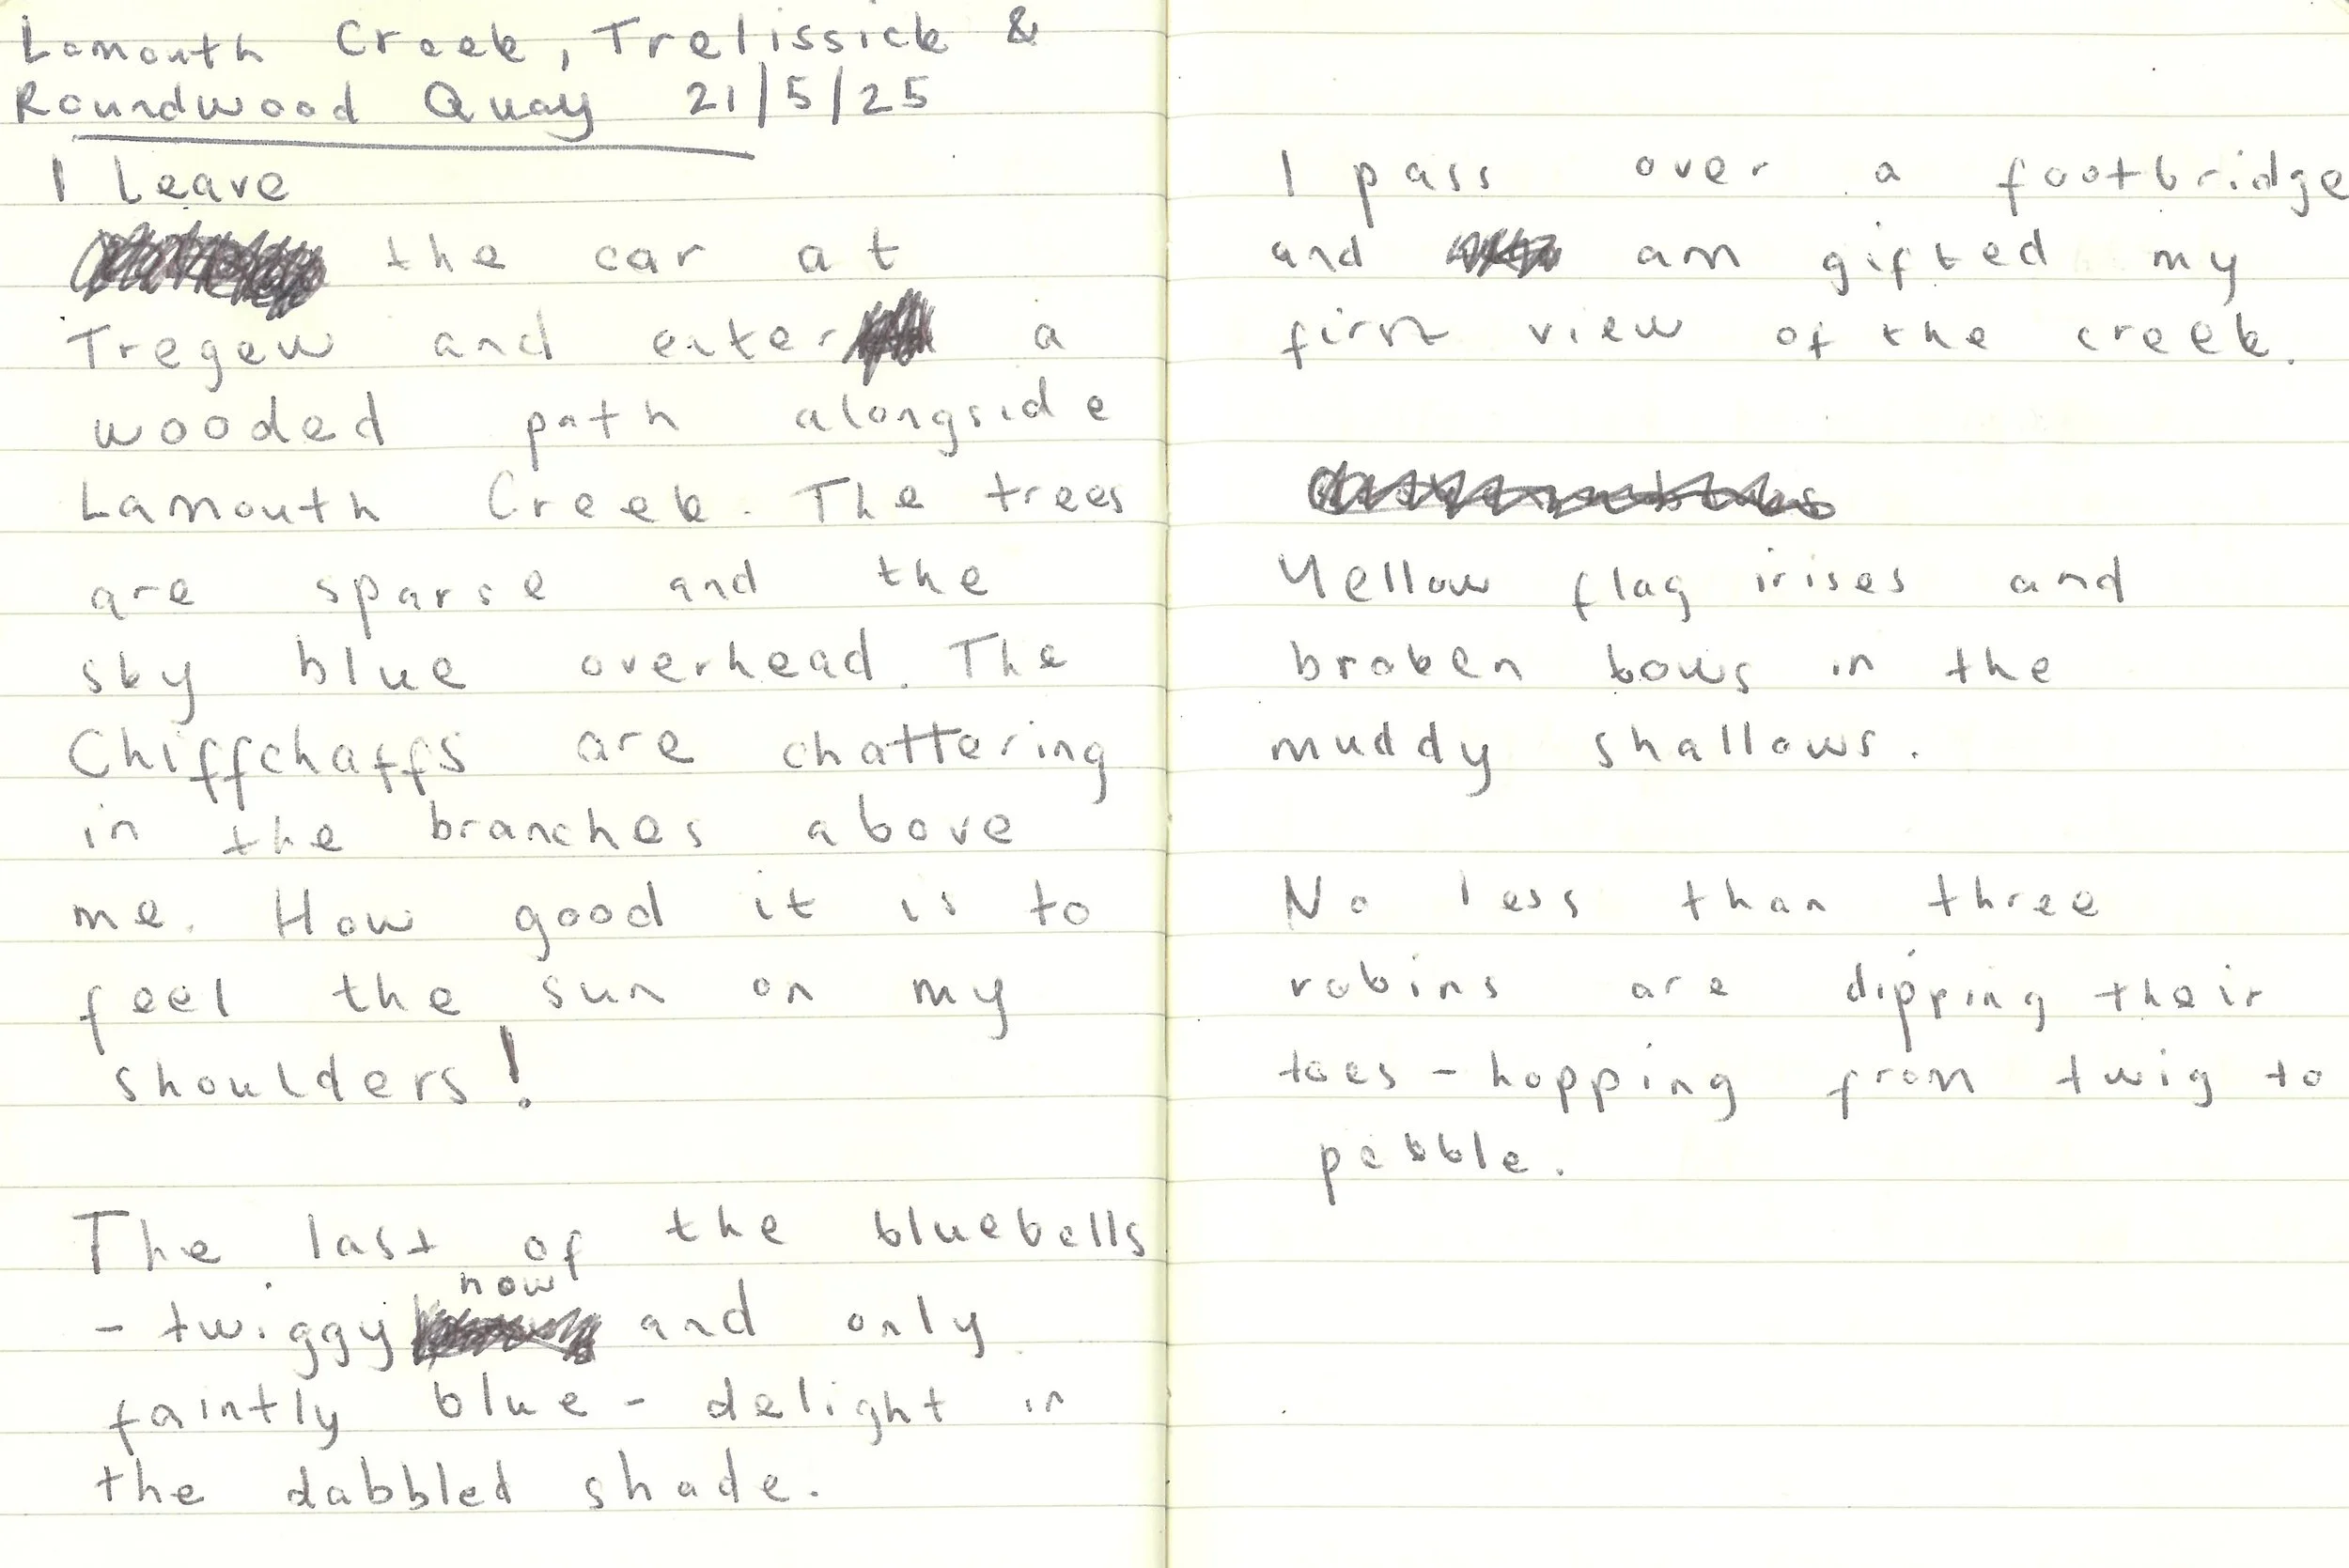 Lamouth Creek, Trelissick &
Roundwood Quay 21/5/25
I leave
the car at
Tregew and enter a
wooded path alongside
Lamouth Creek. The trees
are sparse and the
sky blue overhead. The
Chiffchaffs are chattering
in the branches above
me. How good it is to
feel the sun on my
shoulders!
The last of the bluebells
now
- twiggy and only
faintly blue - delight in
the dabbled shade.
I pass over a footbridge
and am gifted my
first view of the creek.
Yellow flag irises and
broken bows in the
muddy shallows.
No less than three
robins are dipping their
toes - hopping from twig to
pebble.